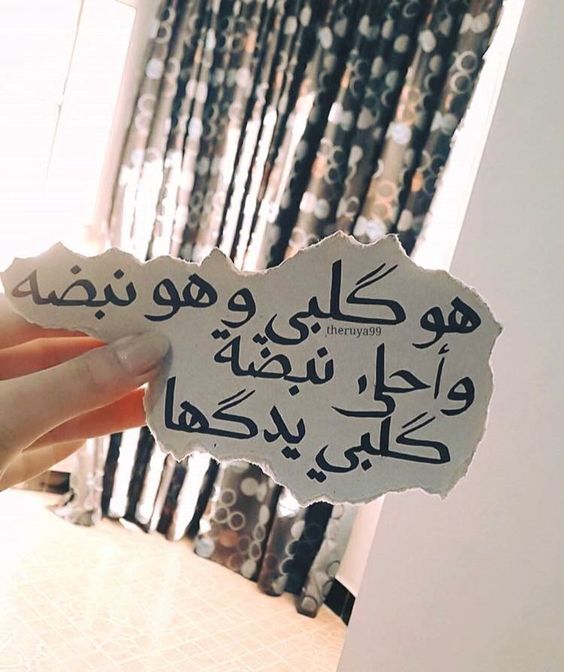 هو گلبي وهو نبضه
theruya99
وأحلى نبضة
گلبي يدگها